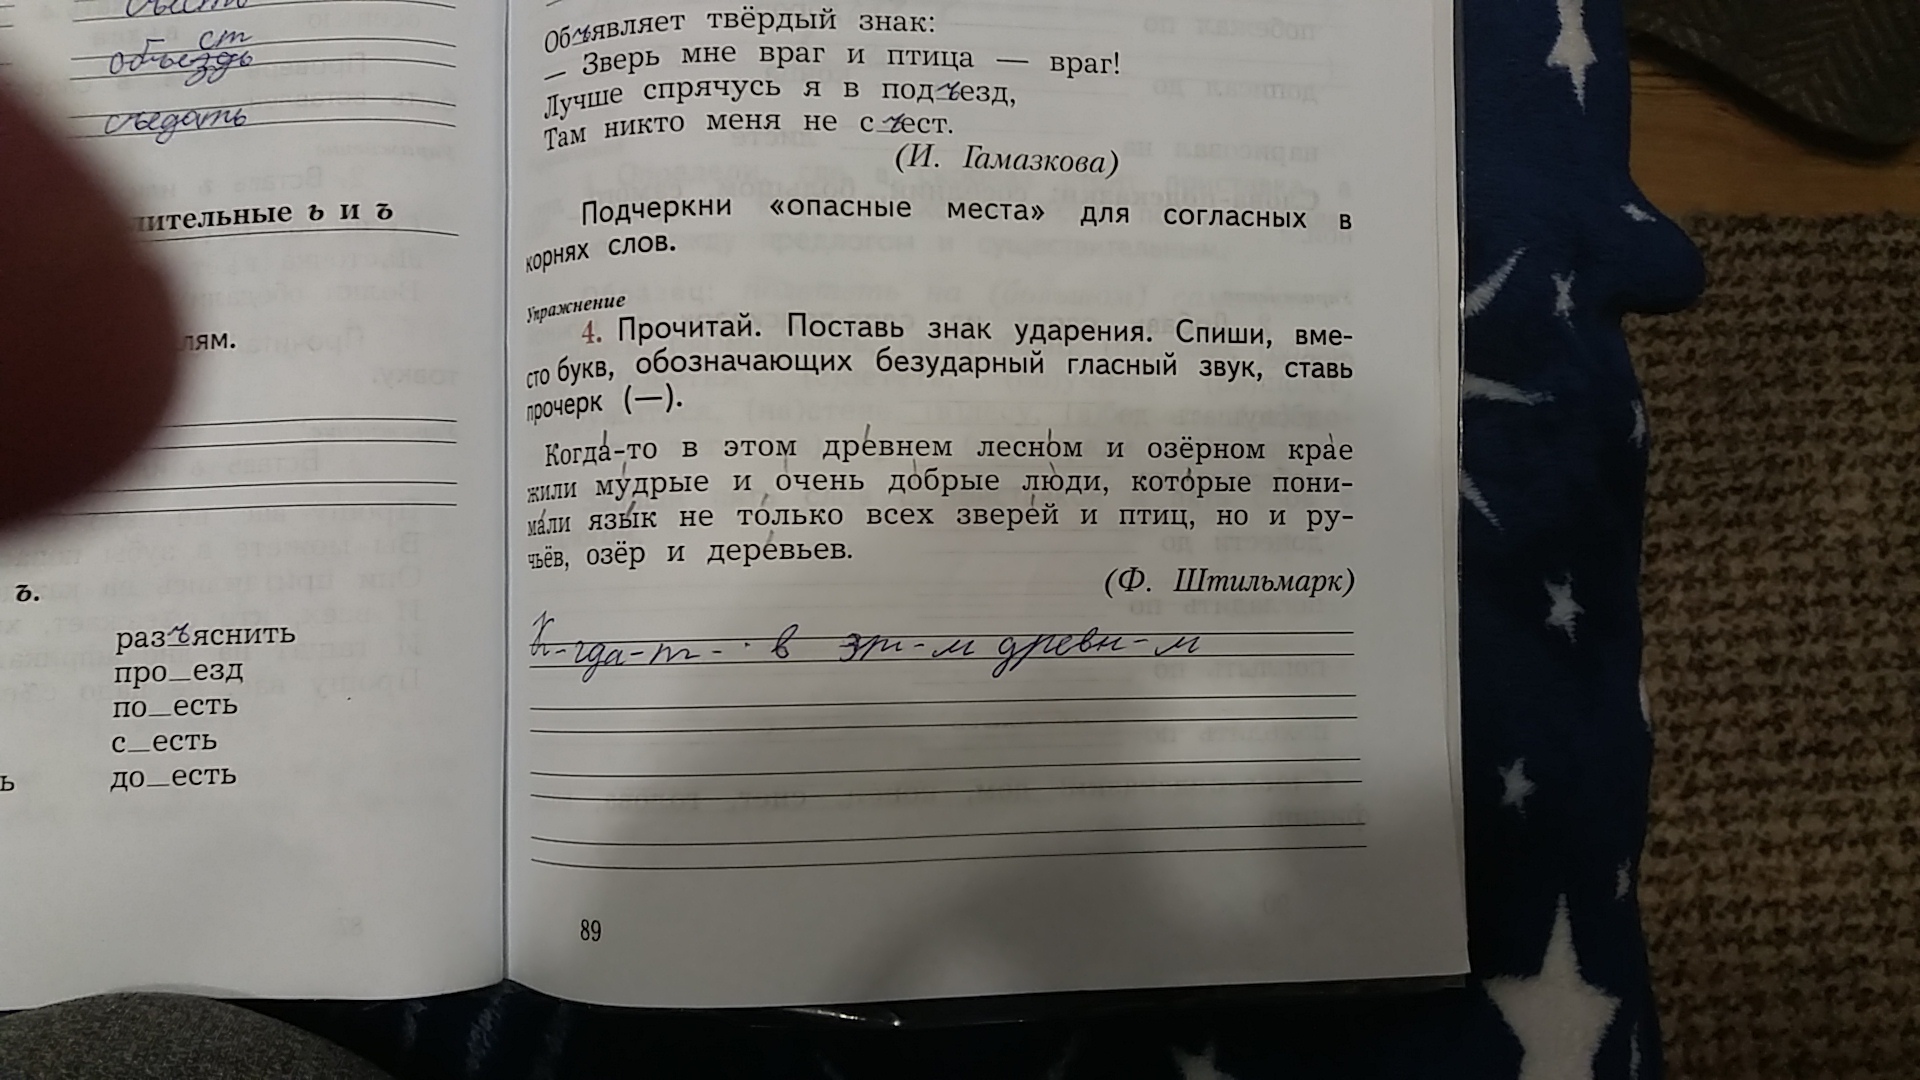 ст
объездь
зд
съедать
лительные ь и ъ
лям.
ъ.
разъяснить
про_езд
по_есть
с_есть
ь
до_есть
Объявляет твёрдый знак:
— Зверь мне враг и птица — враг!
Лучше спрячусь я в подъезд,
Там никто меня не съест.
(И. Гамазкова)
Подчеркни «опасные места» для согласных в
корнях слов.
Упражнение
4. Прочитай. Поставь знак ударения. Спиши, вме-
сто букв, обозначающих безударный гласный звук, ставь
прочерк (—).
Когда́-то в этом дре́внем лесно́м и озёрном кра́е
жили му́дрые и о́чень до́брые лю́ди, кото́рые пони-
ма́ли язы́к не то́лько всех звере́й и птиц, но и ру-
чьёв, озёр и дере́вьев.
(Ф. Штильмарк)
К-гда-т- в эт-м древн-м
89